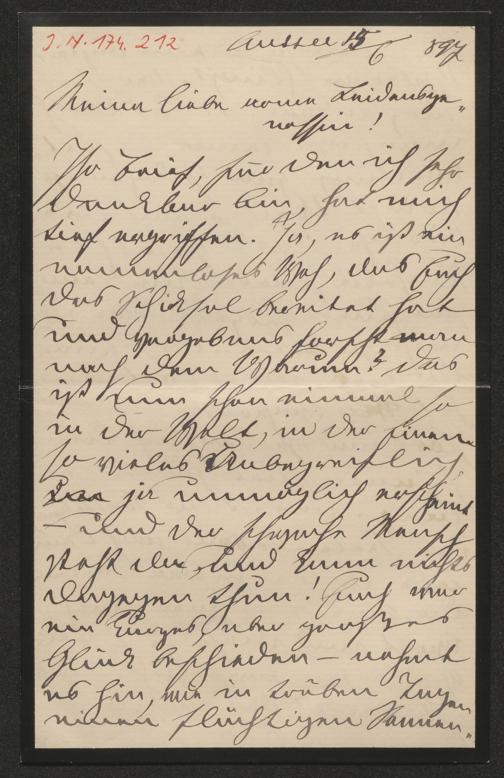 J. N. 174.212
Aussee 15/6 897
Meine liebe arme Leidensge-
nossin!
Ihr Brief, für den ich sehr
dankbar bin, hat mich
tief ergriffen. Ja, es ist ein
namenloses Weh, das Euch
das Schicksal bereitet hat
und vergebens forscht man
nach dem Warum? Das
ist nun schon einmal so
in der Welt, in der einem
so vieles Unbegreiflich
ja unmöglich erscheint
– und der schwache Mensch
steht da, und kann nichts
dagegen thun! Euch war
ein kurzes, aber großes
Glück beschieden – nehmt
es hin, wie in trüben Tagen
einen flüchtigen Sonnen-